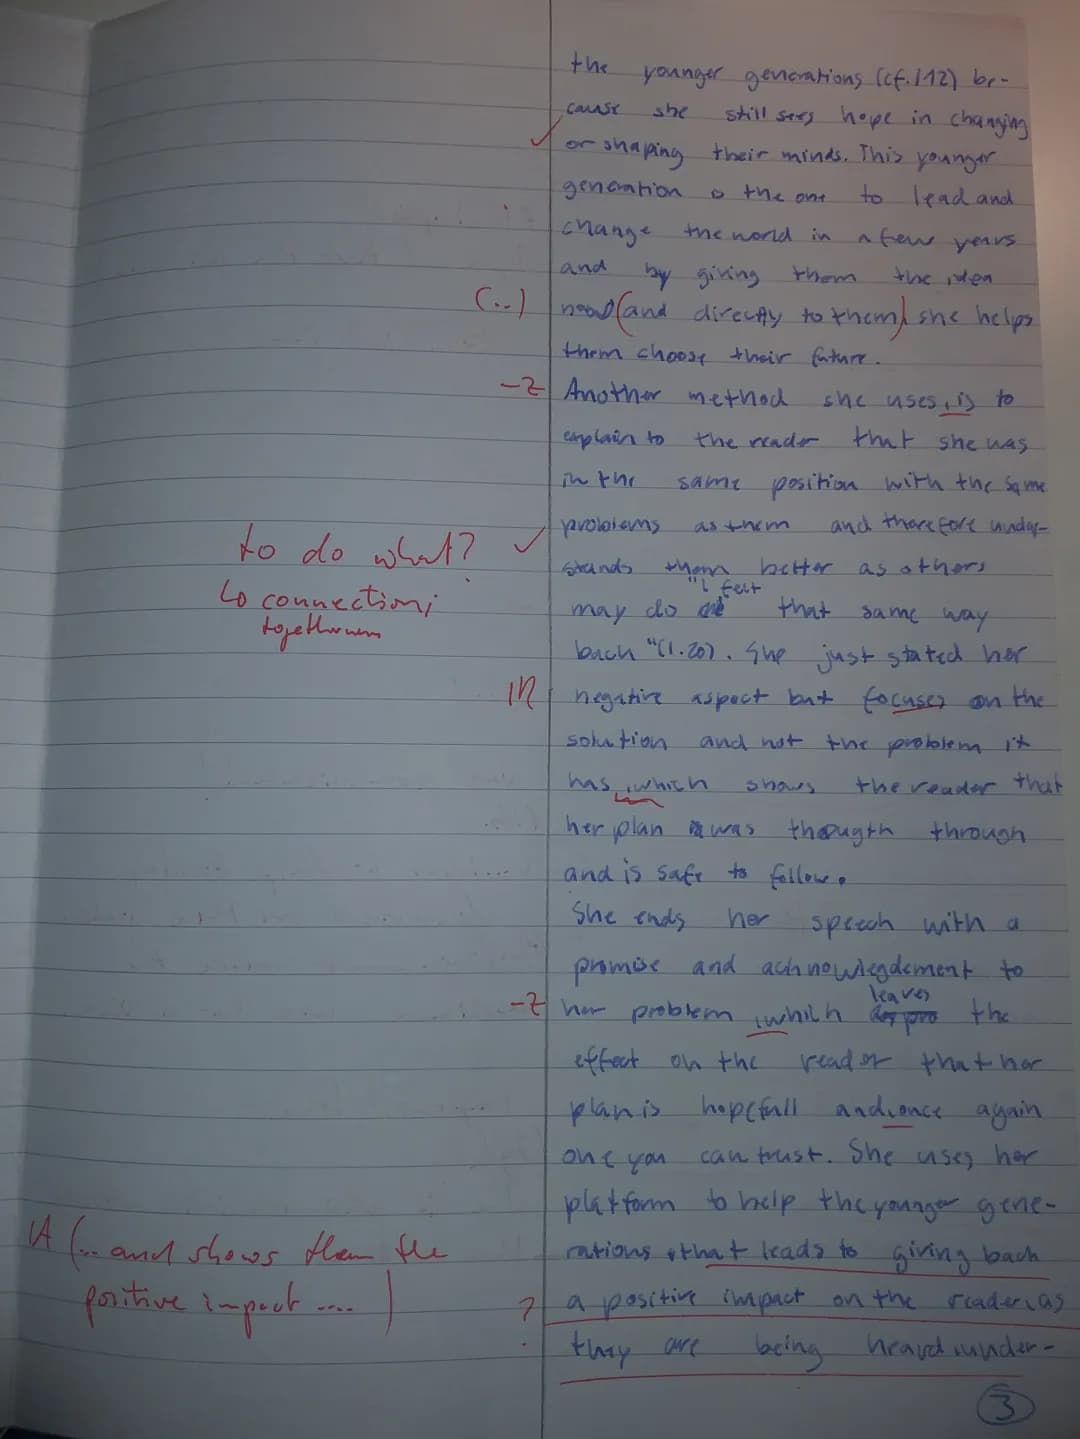 the younger generations (cf. l 12) be-
cause she still sees hope in changing
or shaping their minds. This younger
generation is the one to lead and
change the world in a few years
and by giving them the idea
(...) (and directly to them) she helps
them choose their future.
-Z Another method she uses, is to
explain to the reader that she was
in the same position with the same
problems as them and therefore under-
to do what?
↳ connection;
stands them better as others
"I felt
may do that same way
back "(l.20). She just stated her
negative aspect but focuses on the
solution and not the problem it
has, which shows the reader that
her plan was thougth through
and is safe to follow.
She ends her speech with a
promise and acknowlegdement to
leaves
-Z her problem, which the
effect on the reader that her
plan is hopefull and, once again
one you can trust. She uses her
platform to help the younger gene-
rations, that leads to giving back
A (... and shows them the
positive impact ....)
? a positive impact on the reader, as
they are being heard, under-
3